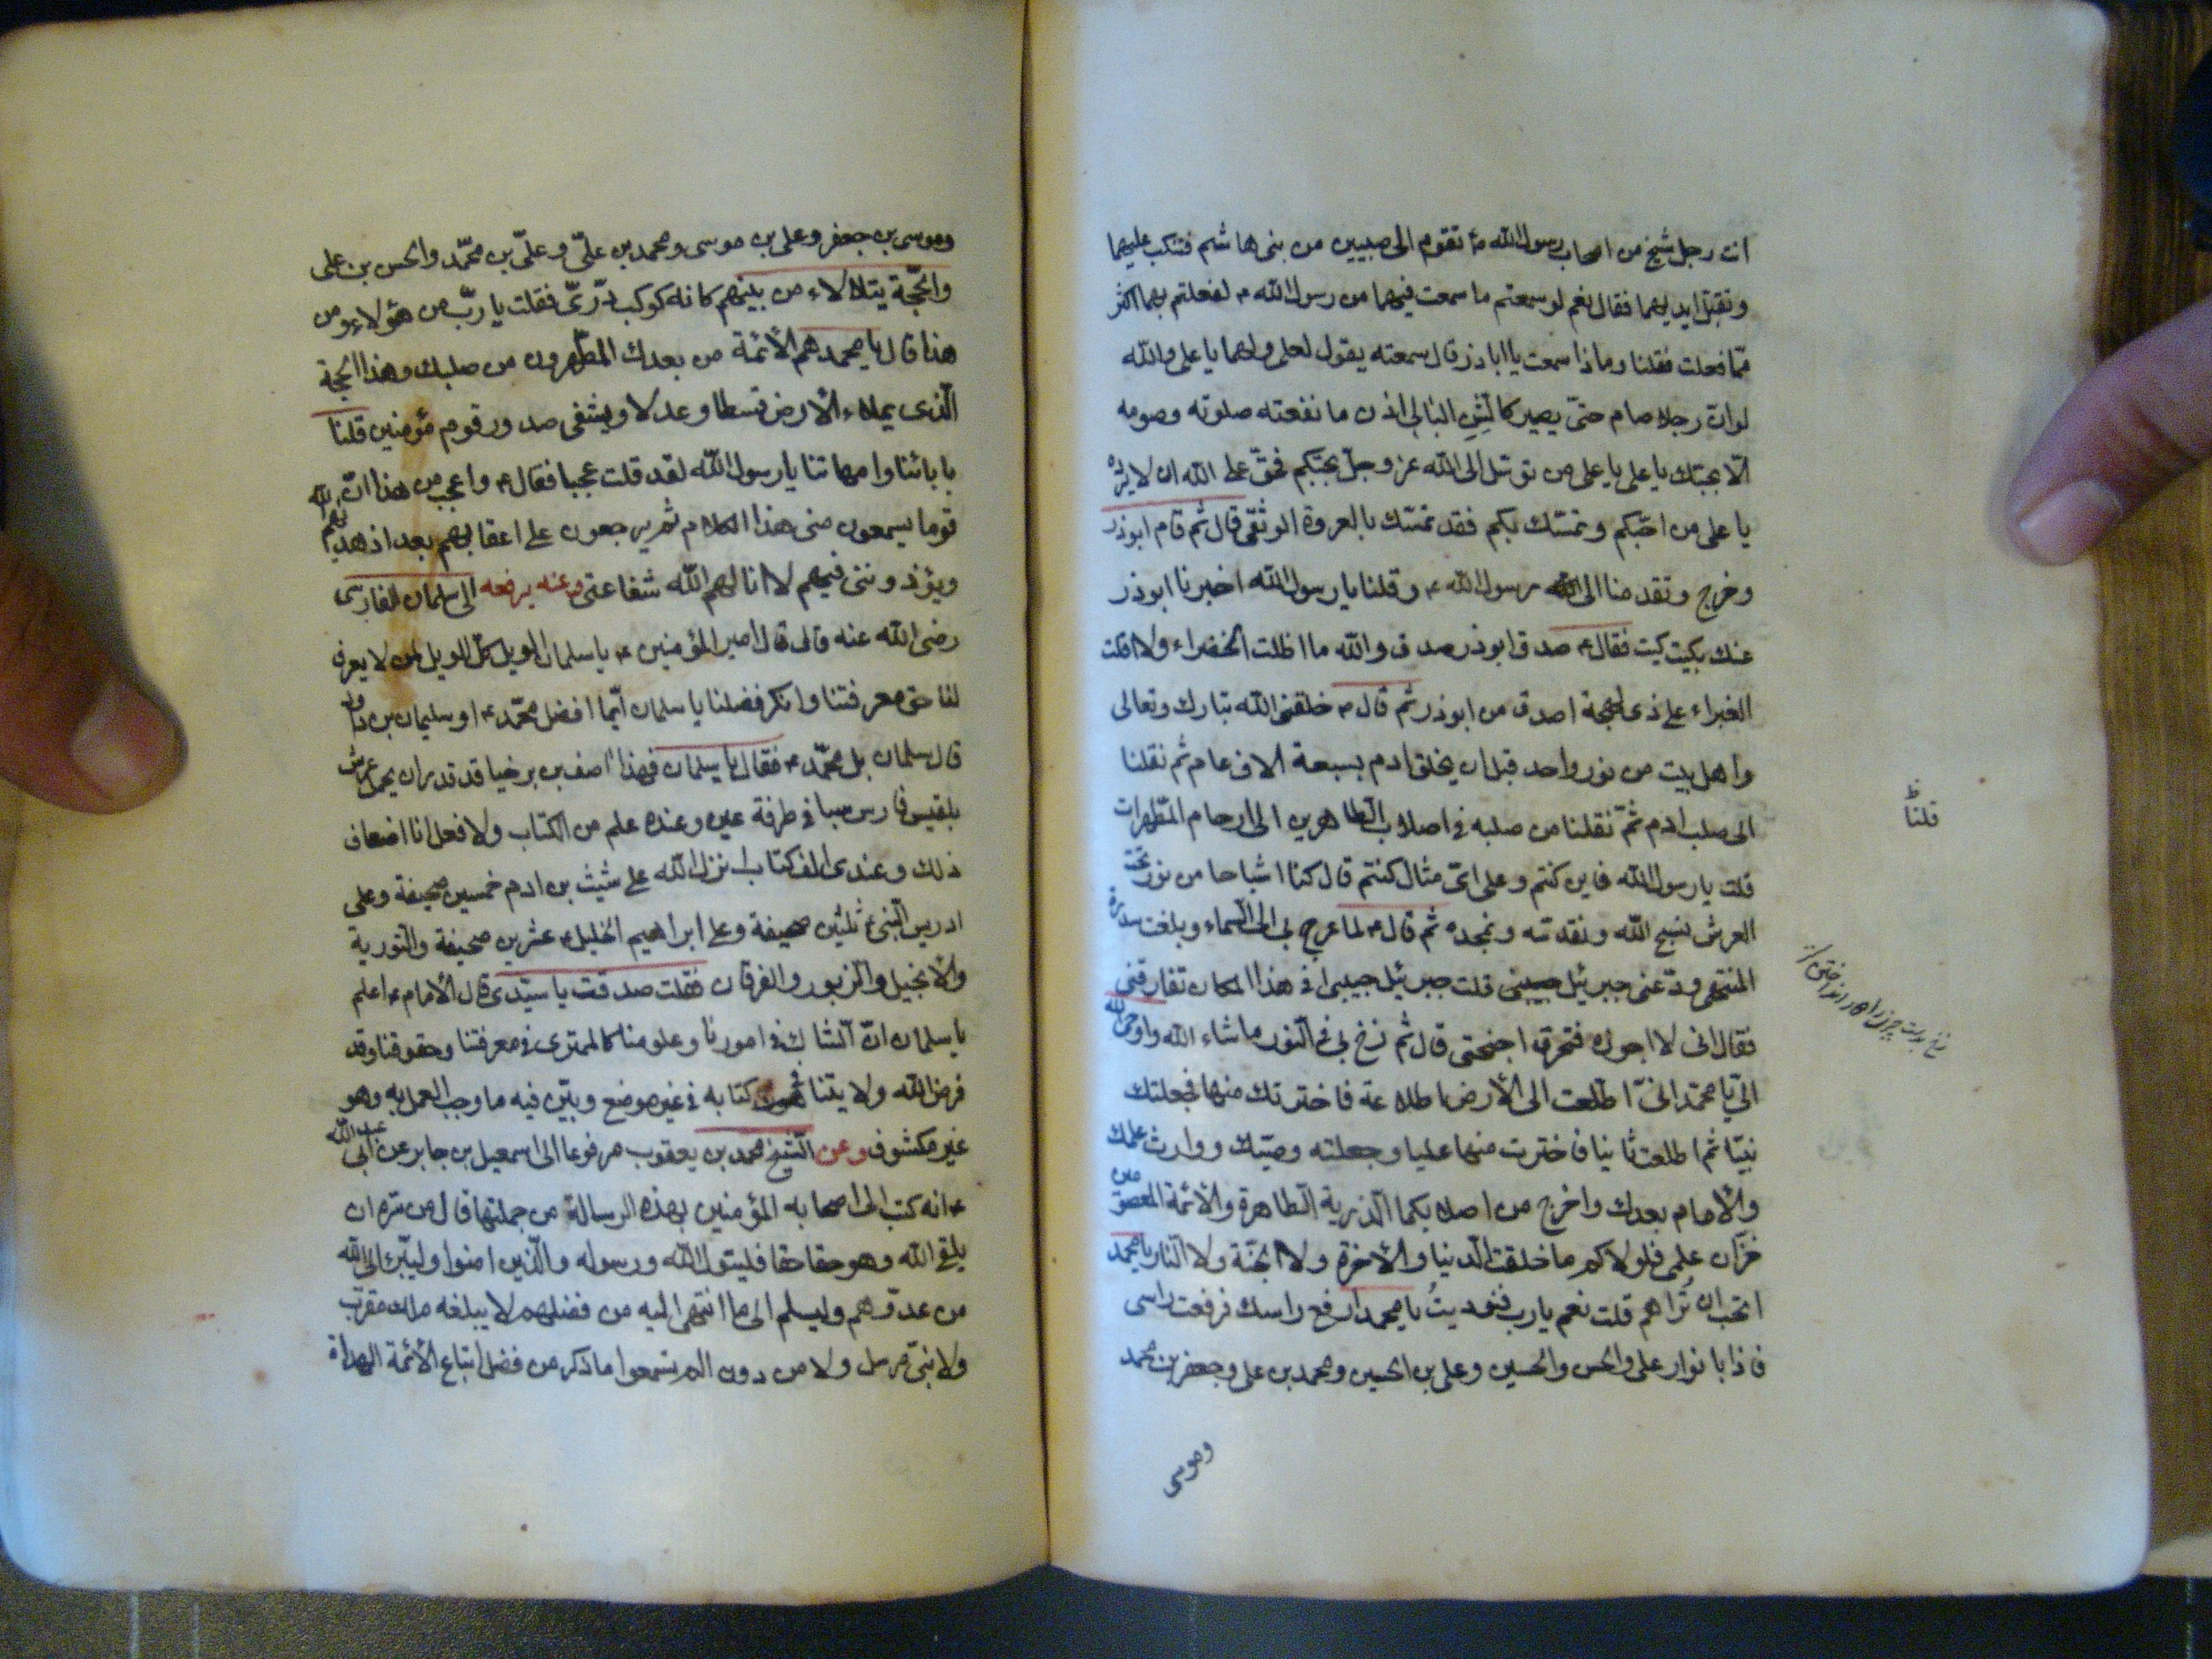 انت رجل شيخ من اصحاب رسول الله ص تقوم الى صبيين من بنى هاشم فتنكب عليهما
وتقبل ايديهما فقال نعم لو سمعتم ما سمعت فيهما من رسول الله ص لفعلتم بهما اكثر
مما فعلت فقلنا وماذا سمعت يا اباذر قال سمعته يقول لعلى ولهما يا على والله
لو ان رجلا صام حتى يصير كالشن البالى اذن ما نفعته صلوته وصومه
الا بحبك يا على يا على من توسل الى الله عز وجل بحبكم فحق على الله ان لا يرده
يا على من احبكم وتمسك بكم فقد تمسك بالعروة الوثقى قال ثم قام ابوذر
وخرج وتقدمنا الى رسول الله ص وقلنا يا رسول الله اخبرنا ابوذر
عنك بكيت كيت فقال ص صدق ابوذر صدق والله ما اظلت الخضراء ولا اقلت
الغبراء على ذى لهجة اصدق من ابوذر ثم قال ص خلقنى الله تبارك وتعالى
واهل بيت من نور واحد قبل ان يخلق ادم بسبعة الاف عام ثم نقلنا
الى صلب ادم ثم نقلنا من صلبه فى اصلاب الطاهرين الى ارحام المطهرات
قلت يا رسول الله فاين كنتم وعلى اى مثال كنتم قال كنا اشباحا من نور تحت
العرش نسبح الله ونقدسه ونمجده ثم قال ص لما عرج بى الى السماء وبلغت سدرة
المنتهى ودعنى جبرئيل قلت جبرئيل حبيبى فى هذا المكان تفارقنى
فقال انى لا اجوزه فتحرق اجنحتى قال ثم زخ بى فى النور ما شاء الله واوحى الله
الى يا محمد انى اطلعت الى الارض اطلاعة فاخترتك منها فجعلتك
نبيا ثم اطلعت ثانيا فاخترت منها عليا وجعلته وصيك ووارث علمك
والامام بعدك واخرج من اصلابكما الذرية الطاهرة والائمة المعصومين
خزان علمى فلولاكم ما خلقت الدنيا والاخرة ولا الجنة ولا النار يا محمد
اتحب ان تراهم قلت نعم يا رب فنوديت يا محمد ارفع راسك فرفعت راسى
فاذا بانوار على والحسن والحسين وعلى بن الحسين ومحمد بن على وجعفر بن محمد
وموسى
قلنا
وموسى بن جعفر وعلى بن موسى ومحمد بن علىّ وعلىّ بن محمّد والحسن بن على
والحجّة يتلالاء من بينهم كانه كوكب درّىّ فقلت يا ربّ من هؤلاء ومن
هذا قال يا محمد هم الأئمة من بعدك المطهرون من صلبك وهذا الحجة
الّذى يملاء الأرض قسطا وعدلا ويشفى صدور قوم مؤمنين قلنا
بابائنا وامهاتنا يا رسول الله لقد قلت عجبا فقال ص واعجب من هذا انّ
قوما يسمعون منى هذا الكلام ثم يرجعون على اعقابهم بعد اذ هديهم الله
ويؤذوننى فيهم لا انالهم الله شفاعتى وعنه يرفعه الى سلمان الفارسى
رضى الله عنه قال قال امير المؤمنين ع يا سلمان الويل كل الويل لمن لا يعرف
لنا حق معرفتنا وانكر فضلنا يا سلمان ايّما افضل محمّد ص او سليمان بن داود
قال سلمان بل محمّد ص فقال يا سلمان فهذا اصف بن برخيا قد قدر ان يحمل عرش
بلقيس فارس سبا فى طرفة عين وعنده علم من الكتاب ولا فعل انا اضعاف
ذلك وعندى الف كتاب انزل الله على شيث بن ادم خمسين صحيفة وعلى
ادريس النبى ع ثلثين صحيفة وعلى ابراهيم الخليل ع عشرين صحيفة والتورية
والانجيل والزبور والفرقان فقلت صدقت يا سيّدى قال الأمام ع اعلم
يا سلمان انّ الشاك فى امورنا وعلومنا كالممترى فى معرفتنا وحقوقنا وقد
فرض الله ولايتنا كتابه فى غير موضع وبيّن فيه ما وجب العمل به وهو
غير مكشوف وعن الشيخ محمد بن يعقوب مرفوعا الى اسمعيل بن جابر عن ابى عبد الله
ع انه كتب الى اصحابه المؤمنين بهذه الرسالة من جملتها قال من سره ان
يلقى الله وهو حقا حقا فليتول الله ورسوله والّذين امنوا وليتبرّء الى الله
من عدوّهم وليسلم الى ما انتهى اليه من فضلهم لا يبلغه ملك مقرّب
ولا نبىّ مرسل ولا من دون الم تسمعوا ما ذكر من فضل اتباع الأئمة الهداة